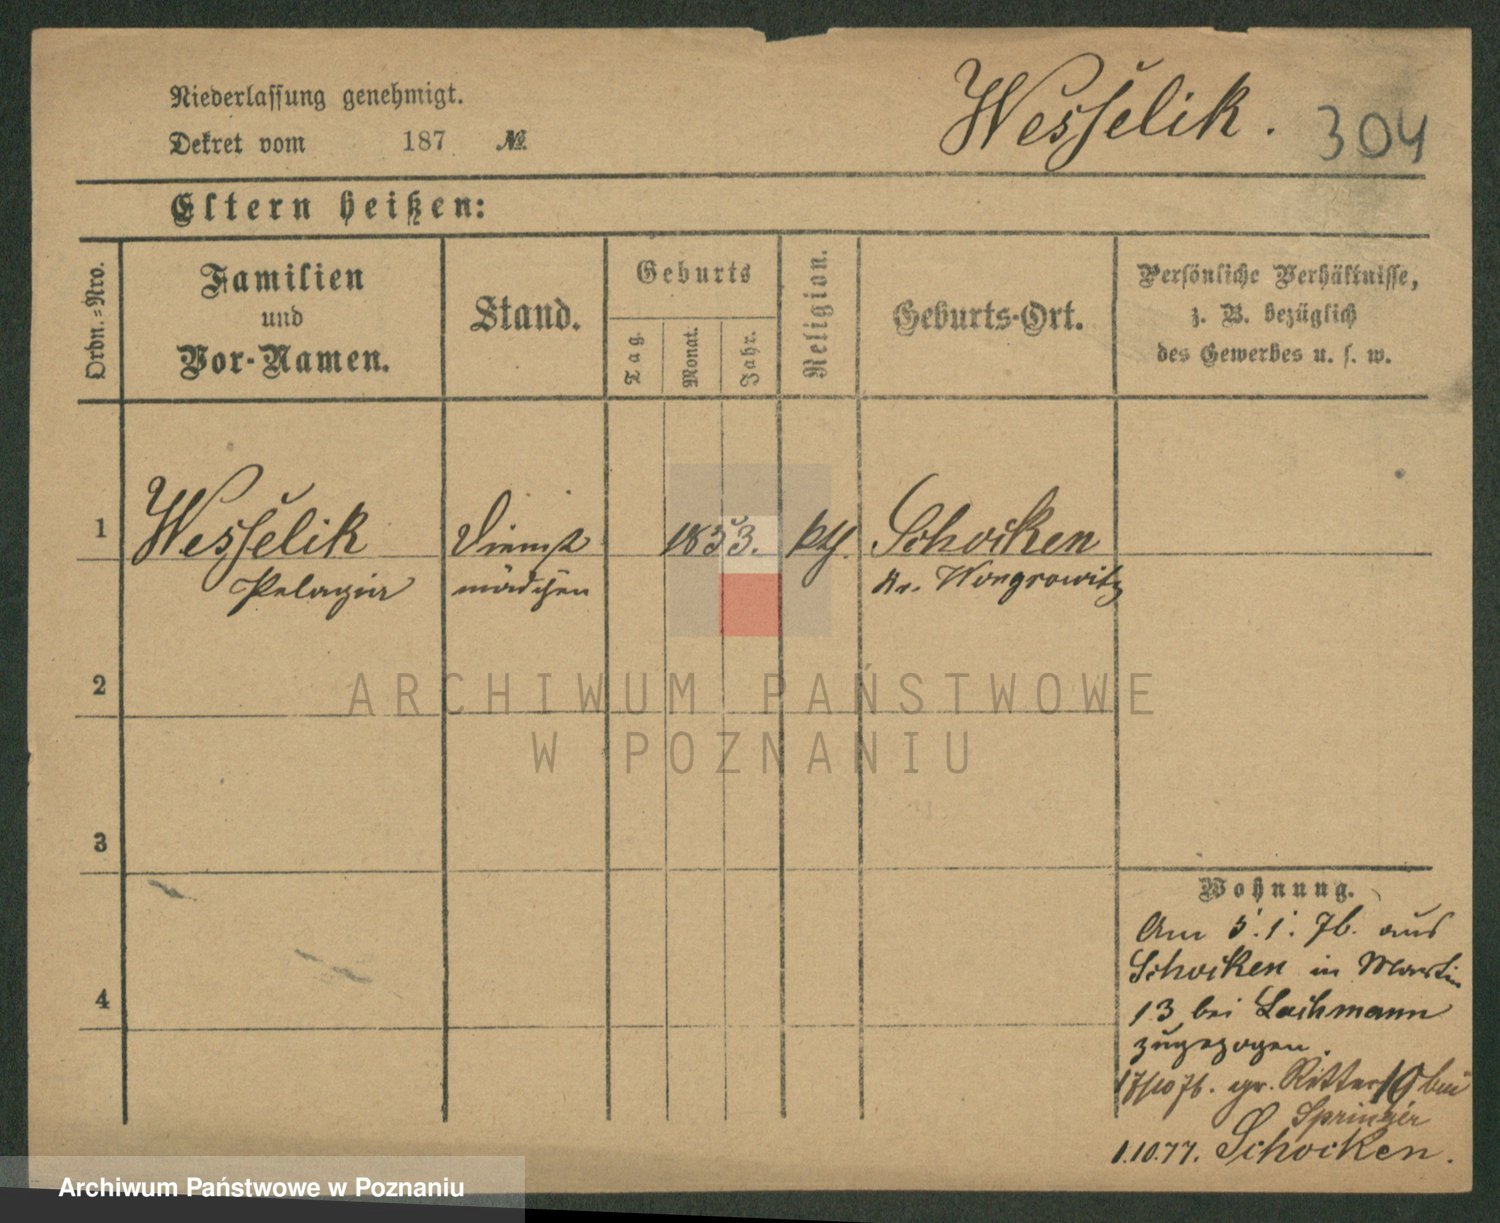 Niederlassung genehmigt.
Dekret vom 187 №
Wesselik. 304
Eltern heißen:
Ordn.-Nro.
Familien
und
Vor-Namen.
Stand.
Geburts
Tag.
Monat.
Jahr.
Religion.
Geburts-Ort.
Persönliche Verhältnisse,
z. B. bezüglich
des Gewerbes u. s. w.
1 Wesselik Dienst 1853. kth. Schocken
Pelagia mädchen Kr. Wongrowitz
2
ARCHIWUM PAŃSTWOWE
W POZNANIU
3
4
Wohnung.
Am 5.1.76. aus
Schocken in Martin
13 bei Lachmann
zugezogen.
17/10 76. gr. Ritter 10 bei
Springer
1.10.77. Schocken.
Archiwum Państwowe w Poznaniu